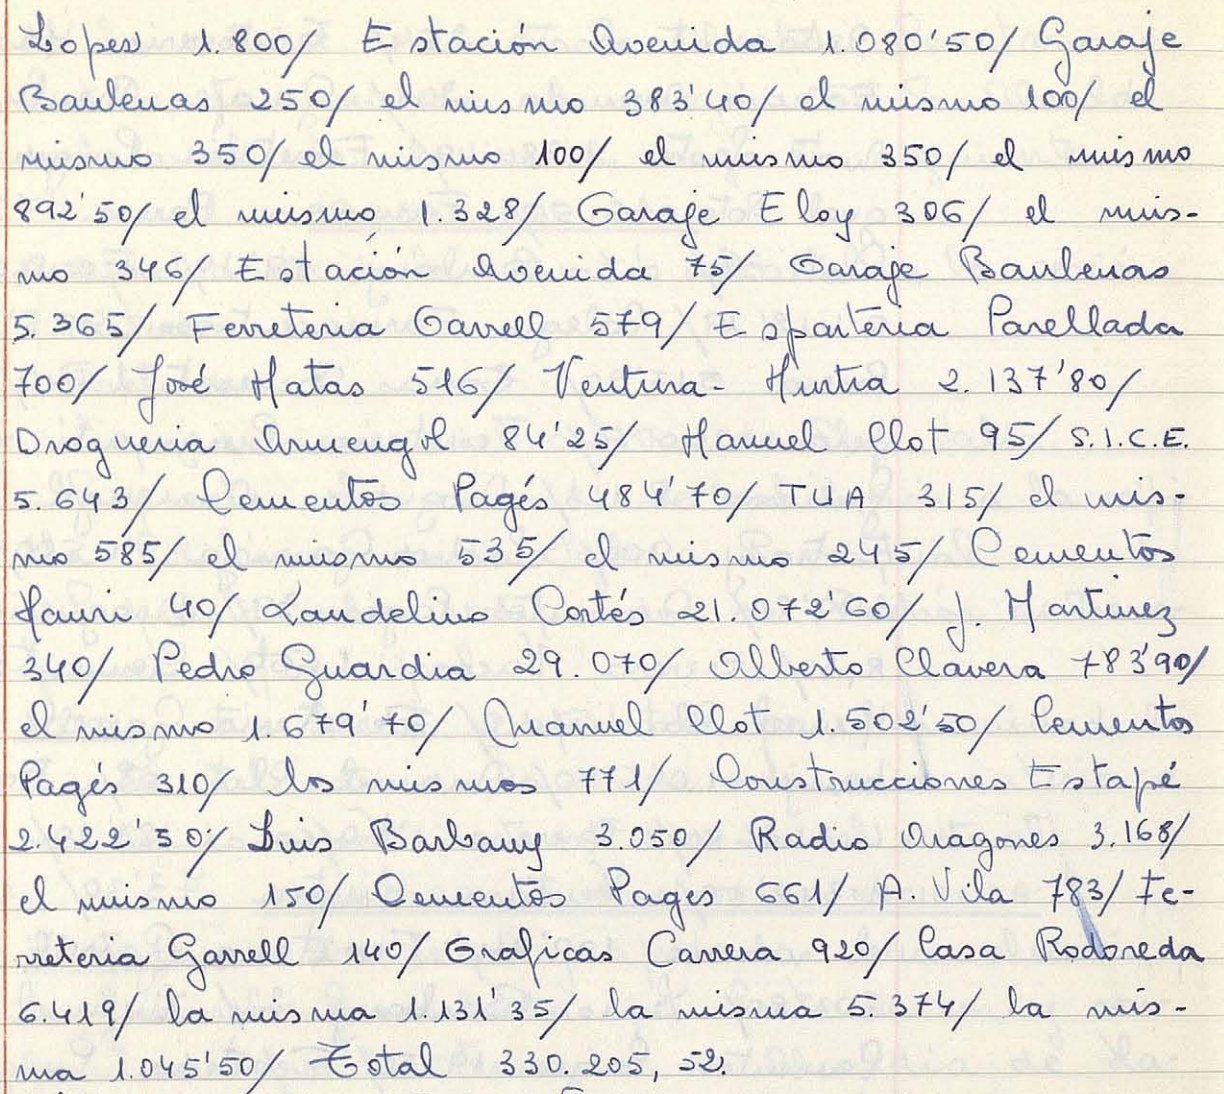 Lopez 1.800/ Estación Avenida 1.080'50/ Garaje
Baulenas 250/ el mismo 383'40/ el mismo 100/ el
mismo 350/ el mismo 100/ el mismo 350/ el mismo
892'50/ el mismo 1.328/ Garaje Eloy 306/ el mis-
mo 346/ Estación Avenida 75/ Garaje Baulenas
5.365/ Ferreteria Garrell 579/ Esparteria Parellada
700/ José Matas 516/ Ventura- Muntia 2.137'80/
Drogueria Armengol 84'25/ Manuel Clot 95/ S.I.C.E.
5.643/ Cementos Pagés 484'70/ TUA 315/ el mis-
mo 585/ el mismo 535/ el mismo 245/ Cementos
Mauri 40/ Laudelino Cortés 21.072'60/ J. Martinez
340/ Pedro Guardia 29.070/ Alberto Clavera 783'90/
el mismo 1.679'70/ Manuel Clot 1.502'50/ Cementos
Pagés 310/ los mismos 771/ Construcciones Estapé
2.422'50/ Luis Barbany 3.050/ Radio Aragonés 3.168/
el mismo 150/ Cementos Pages 661/ A. Vila 783/ Fe-
rreteria Garrell 140/ Graficas Carrera 920/ Casa Rodoreda
6.419/ la misma 1.131'35/ la misma 5.374/ la mis-
ma 1.045'50/ Total 330.205, 52.